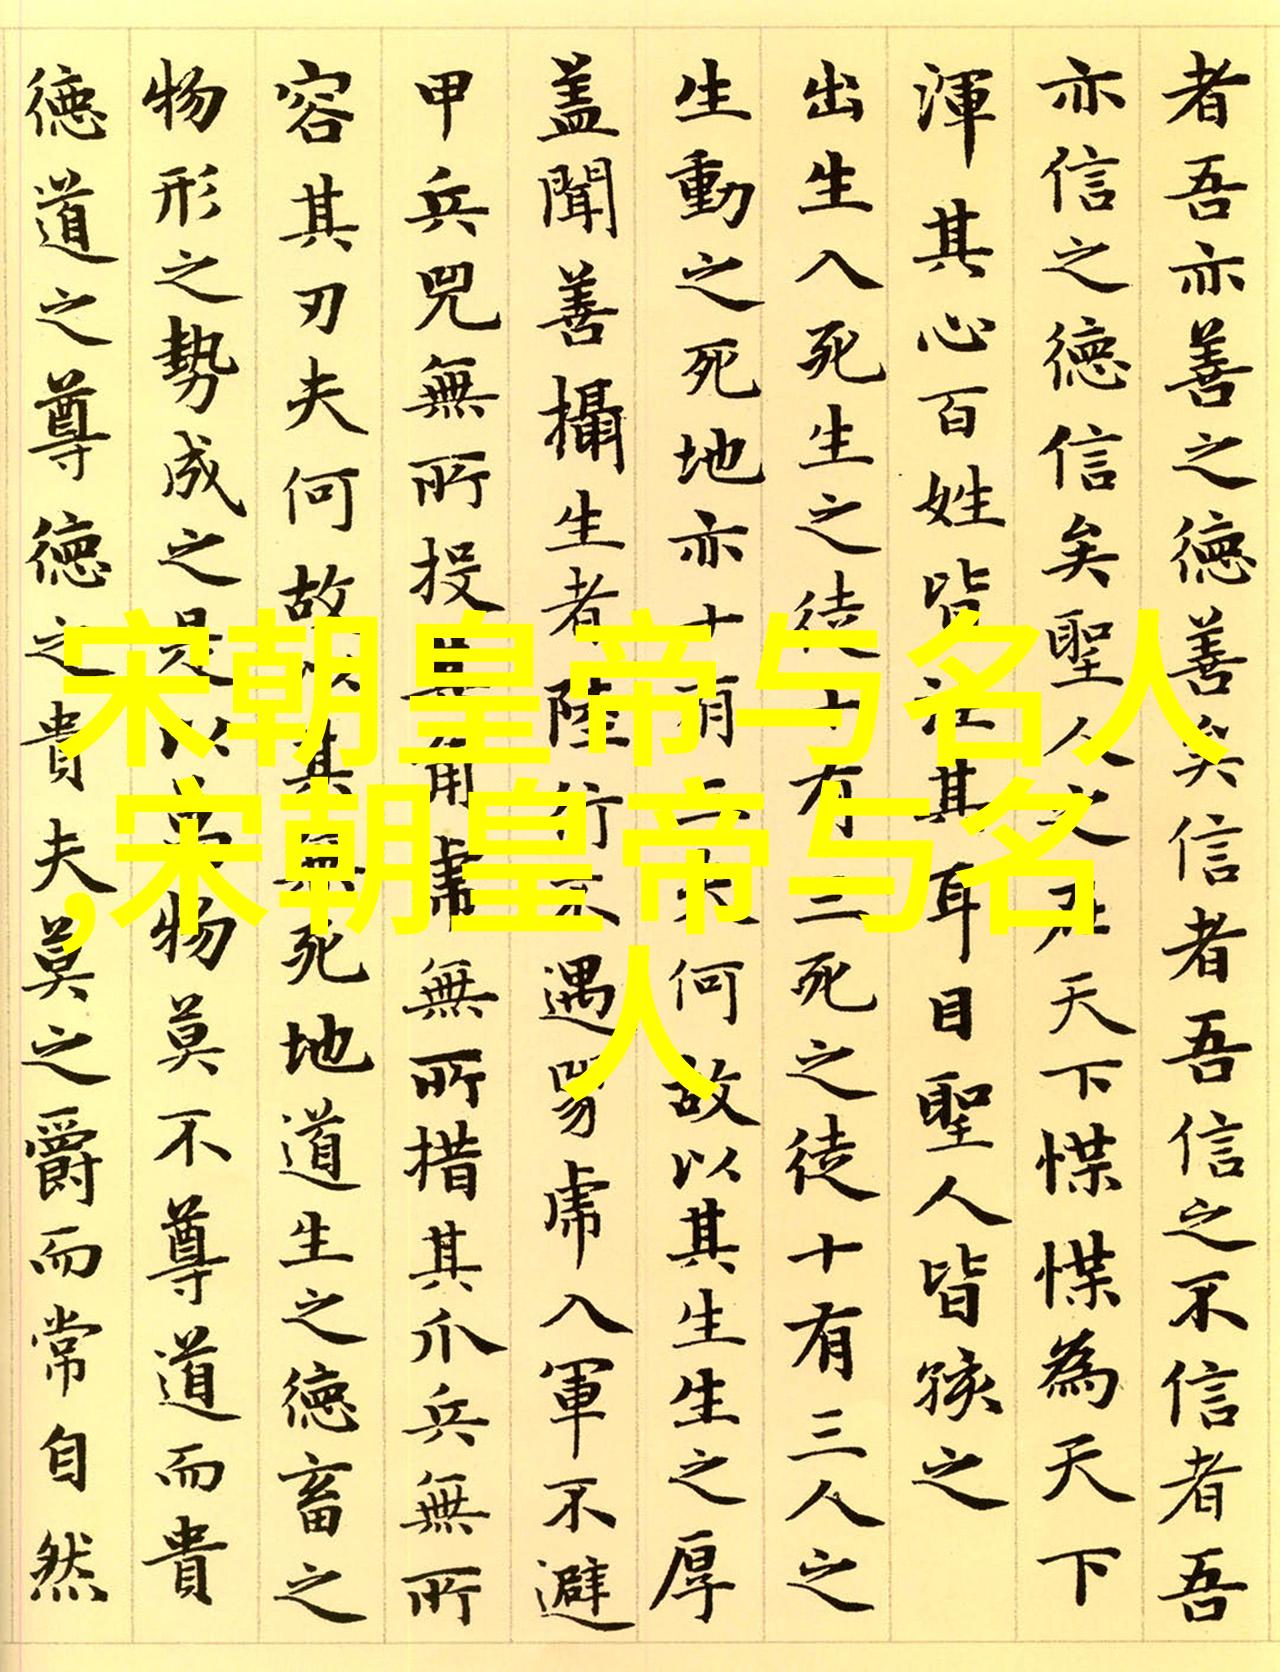 者吾亦善之德善矣信者吾信之不信者吾
亦信之德信矣聖人之在天下惵惵為天下
渾其心百姓皆注其耳目聖人皆孩之
出生入死生之徒十有三死之徒十有三人之
生動之死地亦十有三夫何故以其生生之厚
蓋聞善攝生者陸行不遇兕虎入軍不避
甲兵兕無所投其角虎無所措其爪兵無所
容其刃夫何故以其無死地道生之德畜之
物形之勢成之是以萬物莫不尊道而貴
德道之尊德之貴夫莫之爵而常自然
宋朝皇帝与名人
,宋朝皇帝与名
人